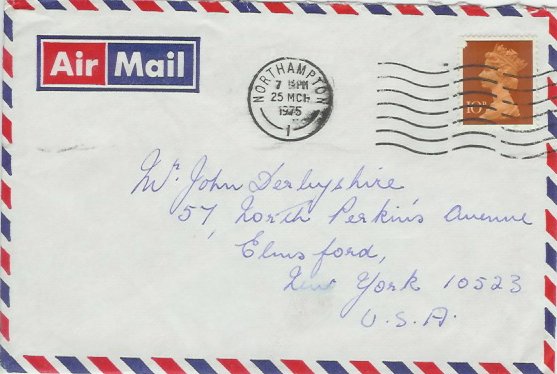 Air Mail
NORTHAMPTON
25 MCH
1975
1
10P
Mr. John Derbyshire
57, North Perkins Avenue
Elmsford,
New York 10523
U.S.A.